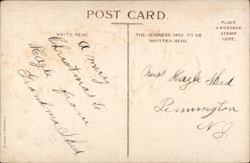 POST CARD.
PLACE
A POSTAGE
STAMP
HERE.
WRITE HERE
THE ADDRESS ONLY TO BE
WRITTEN HERE.
A merry
Christmas to
Hazle from
Grandma Sked
Miss Hazle Sked
Pennington
NJ